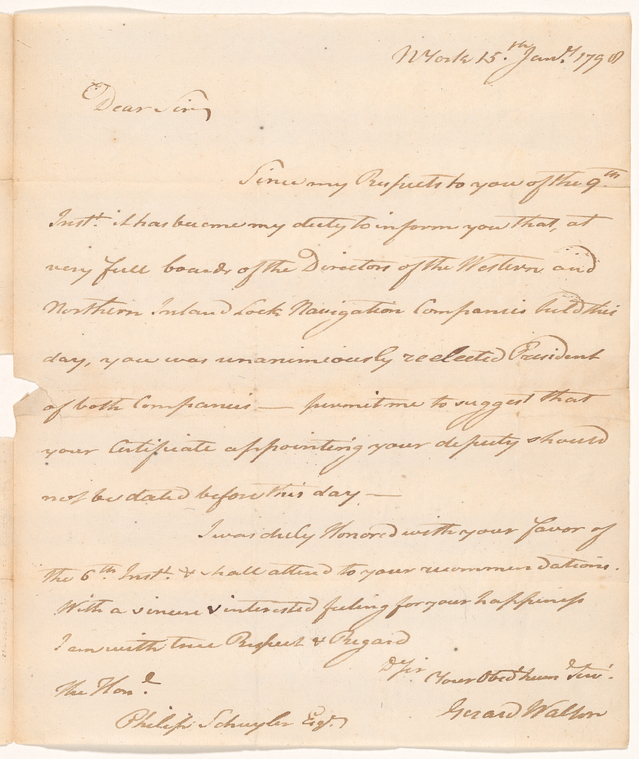 NYork 15.th Jany. 1798
Dear Sir,
Since my Respects to you of the 9.th
Inst. it has become my duty to inform you that, at
very full boards of the Directors of the Western and
Northern Inland Lock Navigation Companies held this
day, you was unanimously reelected President
of both Companies — permit me to suggest that
your Certificate appointing your deputy should
not be dated before this day —
I was duly Honored with your favor of
the 6th Inst. & shall attend to your recommendations.
With a sincere & interested feeling for your happiness
I am with true Respect & Regard
D Sir
Your Obed. hum. Serv.
The Hon.
Philip Schuyler Esq.
Gerard Walton